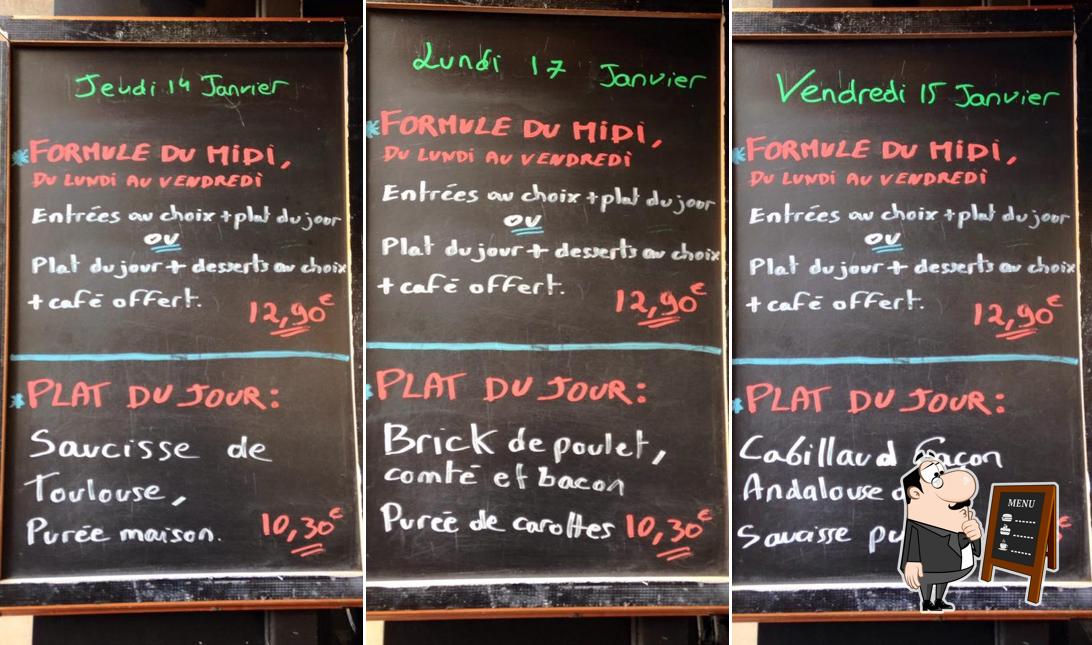 Jeudi 14 Janvier
* FORMULE DU MIDI,
DU LUNDI AU VENDREDI
Entrées au choix + plat du jour
OU
Plat du jour + desserts au choix
+ café offert.
12,90€
* PLAT DU JOUR:
Saucisse de
Toulouse,
Purée maison. 10,30€
Lundi 17 Janvier
* FORMULE DU MIDI,
DU LUNDI AU VENDREDI
Entrées au choix + plat du jour
OU
Plat du jour + desserts au choix
+ café offert.
12,90€
* PLAT DU JOUR:
Brick de poulet,
comté et bacon
Purée de carottes 10,30€
Vendredi 15 Janvier
* FORMULE DU MIDI,
DU LUNDI AU VENDREDI
Entrées au choix + plat du jour
OU
Plat du jour + desserts au choix
+ café offert.
12,90€
* PLAT DU JOUR:
Cabillaud façon
Andalouse
Saucisse pu
€
MENU